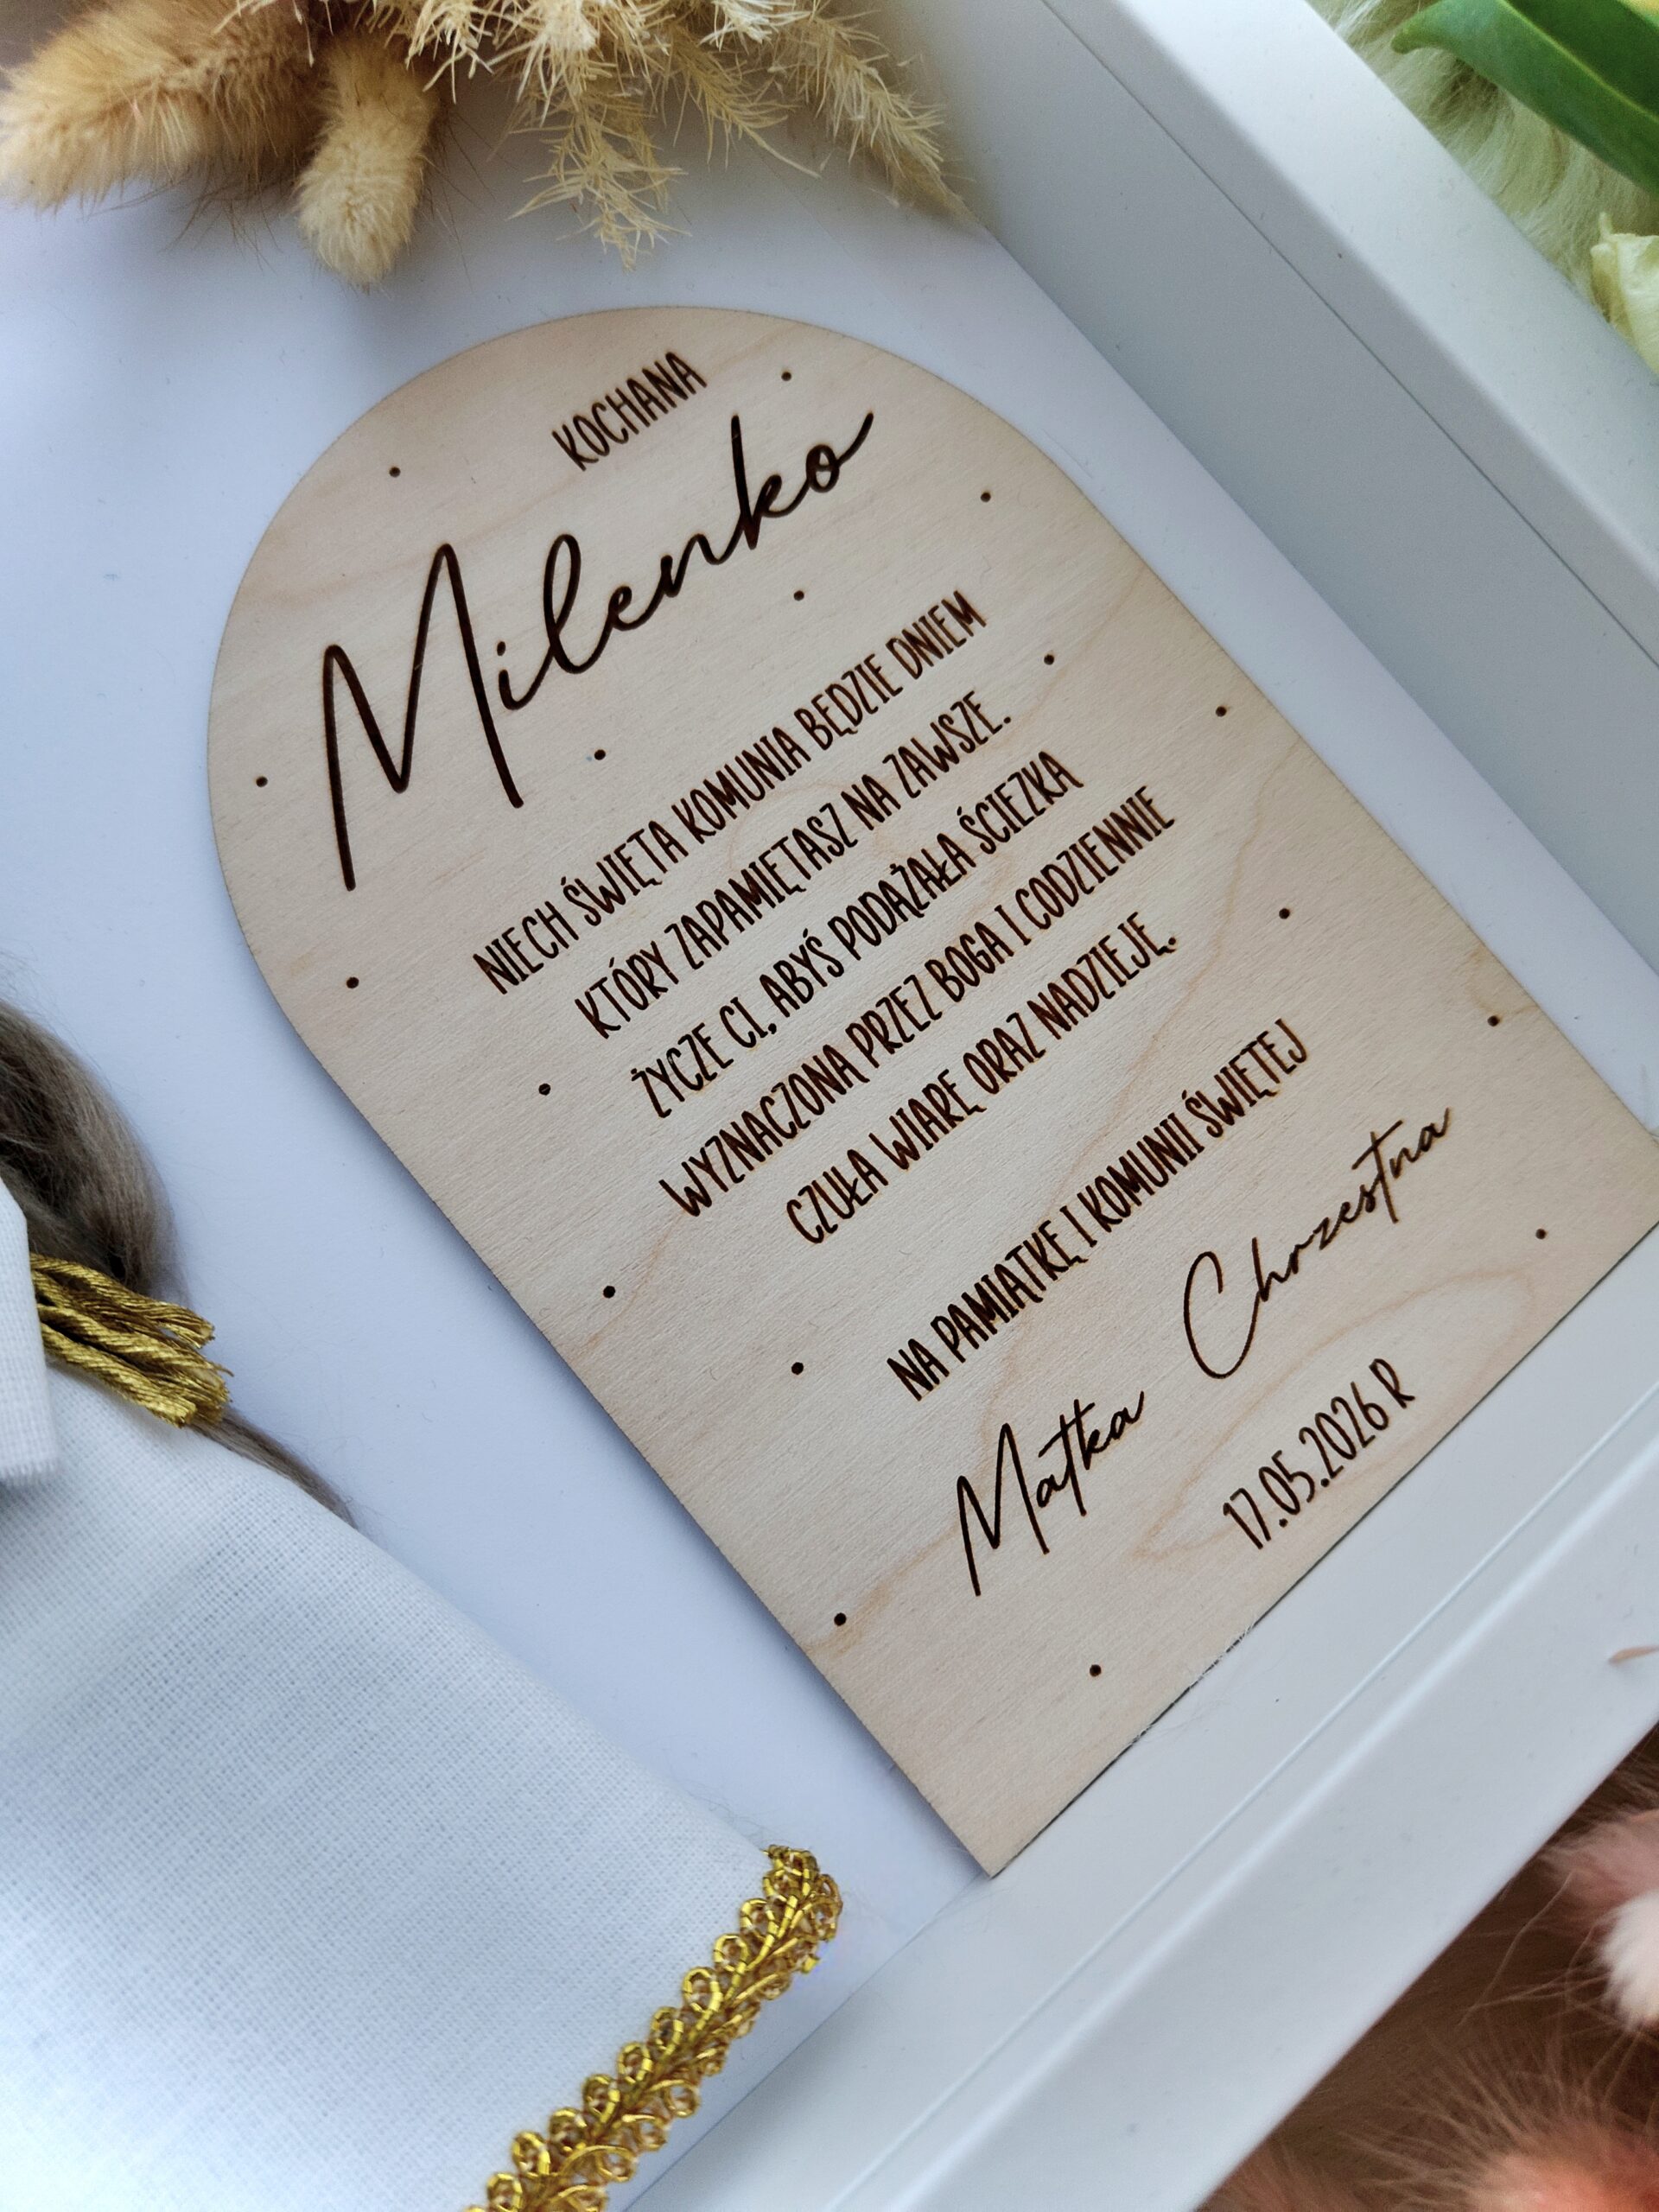 KOCHANA
Milenko
NIECH ŚWIĘTA KOMUNIA BĘDZIE DNIEM
KTÓRY ZAPAMIĘTASZ NA ZAWSZE.
ŻYCZE CI, ABYŚ PODĄŻAŁA ŚCIEZKĄ
WYZNACZONĄ PRZEZ BOGA I CODZIENNIE
CZUŁA WIARĘ ORAZ NADZIEJĘ.
NA PAMIĄTKĘ I KOMUNII ŚWIĘTEJ
Matka Chrzestna
17.05.2026 R